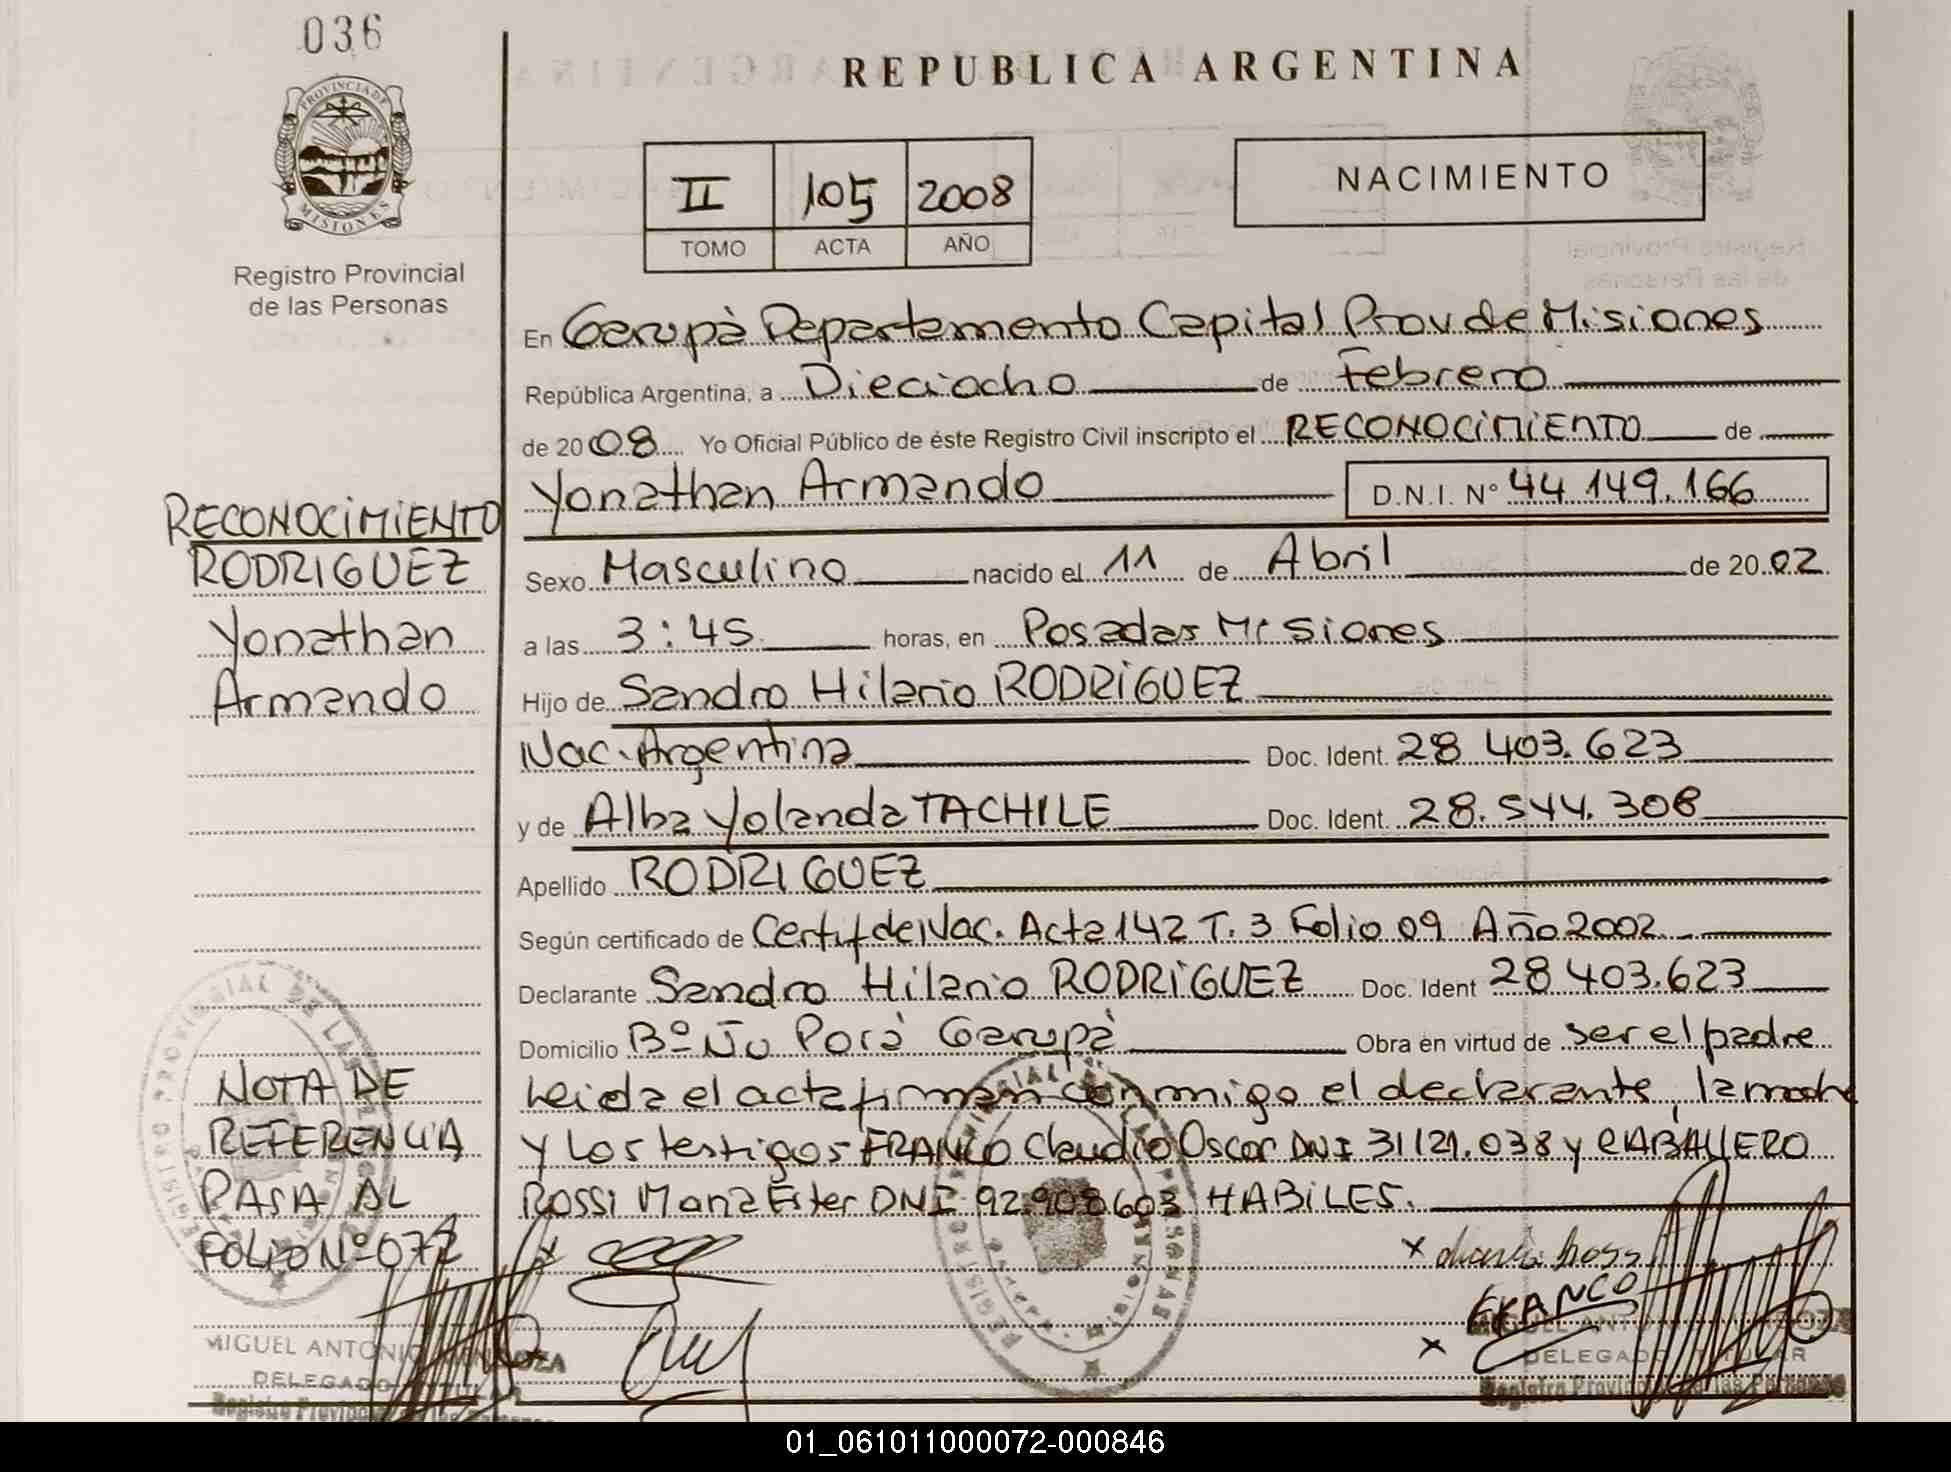 036
REPUBLICA ARGENTINA
PROVINCIA DE MISIONES
Registro Provincial
de las Personas
II 105 2008
TOMO ACTA AÑO
NACIMIENTO
En Garupà Departamento Capital Prov de Misiones
República Argentina, a Dieciocho de Febrero
de 2008 Yo Oficial Público de éste Registro Civil inscripto el RECONOCIMIENTO de
Yonathan Armando D.N.I. Nº 44.149.166
Sexo Masculino nacido el 11 de Abril de 2002
a las 3:45 horas, en Posadas Misiones
Hijo de Sandro Hilario RODRIGUEZ
Nac. Argentina Doc. Ident. 28.403.623
y de Alba Yolanda TACHILE Doc. Ident. 28.544.308
Apellido RODRIGUEZ
Según certificado de Certif de Nac. Acta 142 T. 3 Folio 09 Año 2002
Declarante Sandro Hilario RODRIGUEZ Doc. Ident 28.403.623
Domicilio Bº Ñu Porà Garupà Obra en virtud de ser el padre
Leida el acta firman conmigo el declarante, la madre
y Los testigos FRANCO Claudio Oscar DNI 31.121.038 y CABALLERO
ROSSI Maria Ester DNI 92.908603 HABILES.
RECONOCIMIENTO
RODRIGUEZ
Yonathan
Armando
NOTA DE
REFERENCIA
PASA AL
FOLIO Nº 072
REGISTRO PROVINCIAL DE LAS PERSONAS
REGISTRO PROVINCIAL DE LAS PERSONAS
x
x
FRANCO
x
MIGUEL ANTONIO MENDOZA
DELEGADO TITULAR
Registro Provincial de las Personas
MIGUEL ANTONIO MENDOZA
DELEGADO TITULAR
Registro Provincial de las Personas
01_061011000072-000846